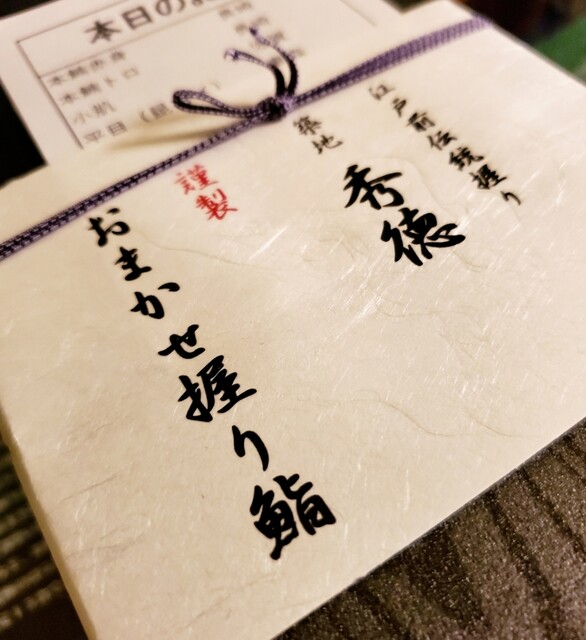 江戸前伝統握り
築地
秀徳
謹製
おまかせ握り鮨
本日の
本鮪赤身
本鮪トロ
小肌
平目